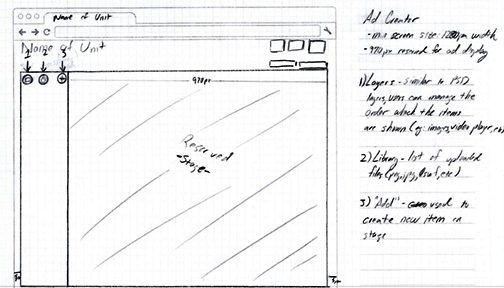 Name of Unit
Name of Unit
1 2 3
970px
Reserved
-Stage-
Ad Creator
-min screen size: 1280px width
-970px reserved for ad display
1) Layers - similar to PSD
layers, users can manage the
order which the items
are shown (eg: images, video player, etc)
2) Library - list of uploaded
files (png, jpg, swf, etc)
3) "Add" - used to
create new item on
stage